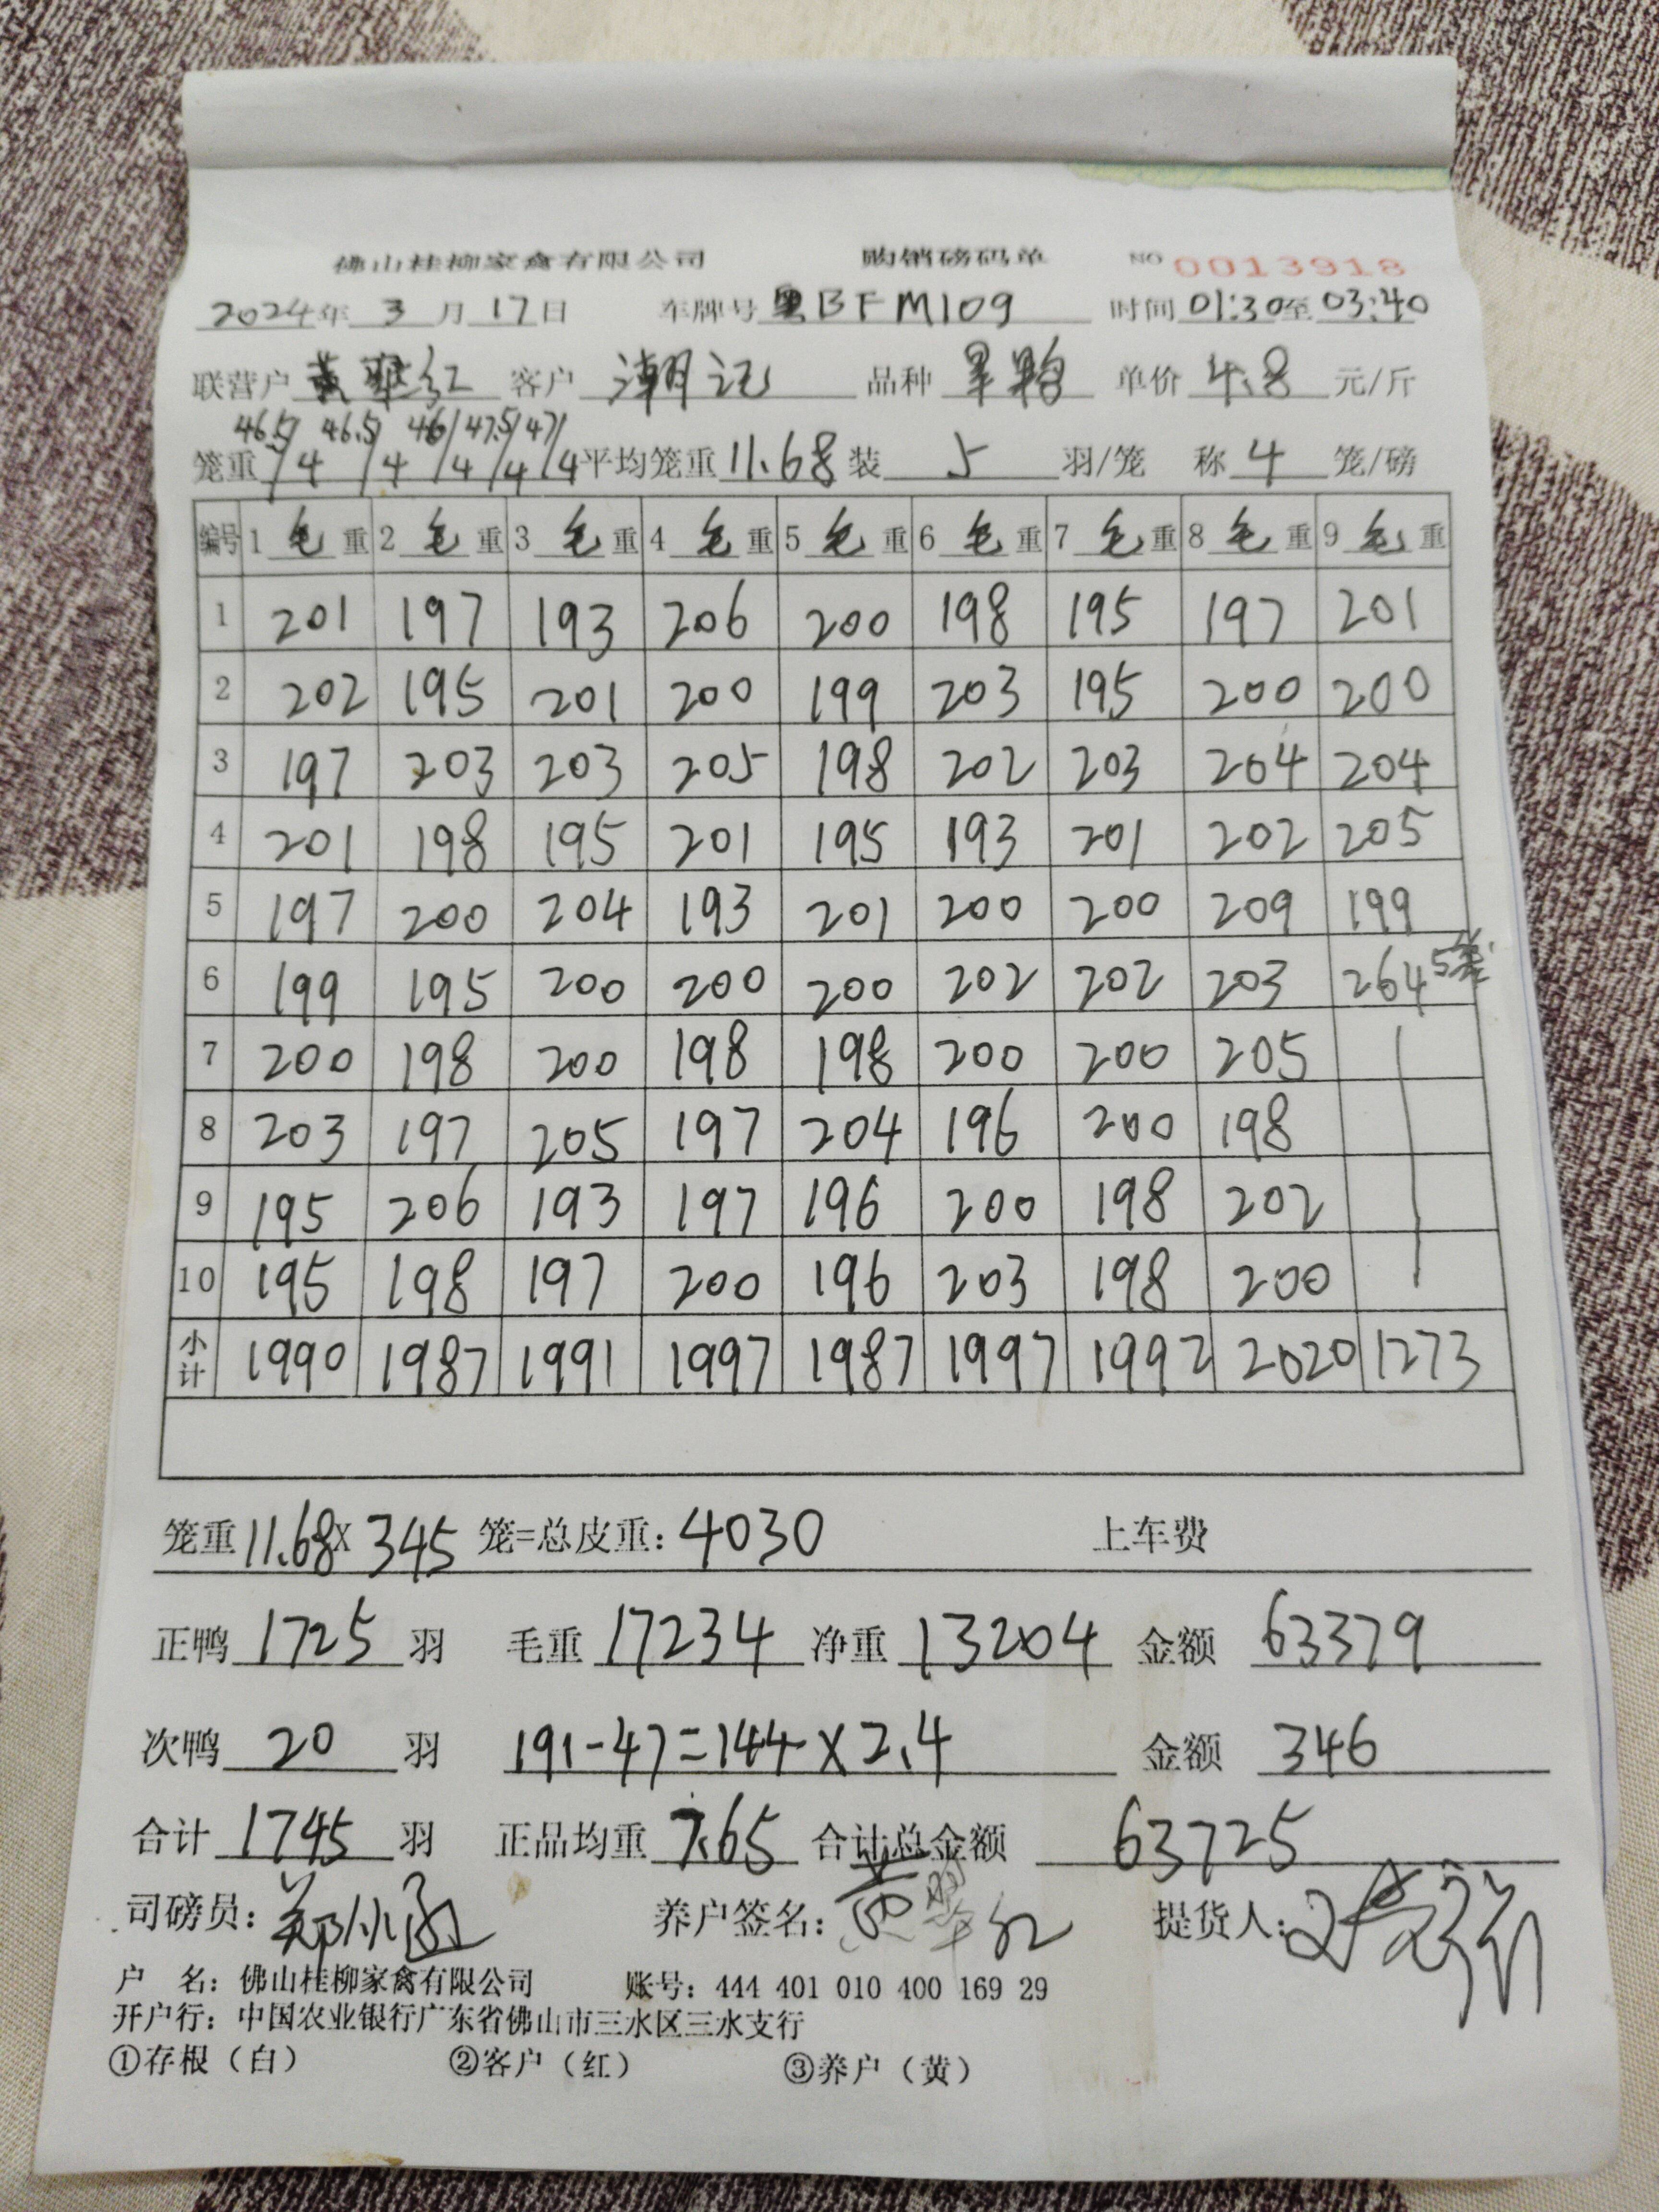 佛山桂柳家禽有限公司 购销磅码单 NO 0013918
2024年 3月 17日 车牌号 粤BFM109 时间 01:30至03:40
联营户 黄翠红 客户 潮记 品种 单价 4.8 元/斤
46.5/ 46.5/ 46/ 47.5/ 47/
笼重 /4 /4 /4 /4 /4 平均笼重 11.68 装 5 羽/笼 称 4 笼/磅
编号 1 毛重 2 毛重 3 毛重 4 毛重 5 毛重 6 毛重 7 毛重 8 毛重 9 毛重
1 201 197 193 206 200 198 195 197 201
2 202 195 201 200 199 203 195 200 200
3 197 203 203 205 198 202 203 204 204
4 201 198 195 201 195 193 201 202 205
5 197 200 204 193 201 200 200 209 199
6 199 195 200 200 200 202 202 203 264 5笼
7 200 198 200 198 198 200 200 205
8 203 197 205 197 204 196 200 198
9 195 206 193 197 196 200 198 202
10 195 198 197 200 196 203 198 200
小计 1990 1987 1991 1997 1987 1997 1992 2020 1273
笼重 11.68 X 345 笼=总皮重: 4030 上车费
正鸭 1725 羽 毛重 17234 净重 13204 金额 63379
次鸭 20 羽 191-47=144×2.4 金额 346
合计 1745 羽 正品均重 7.65 合计总金额 63725
司磅员: 郑小函 养户签名: 黄翠红 提货人:
户 名: 佛山桂柳家禽有限公司 账号: 444 401 010 400 169 29
开户行: 中国农业银行广东省佛山市三水区三水支行
①存根（白） ②客户（红） ③养户（黄）